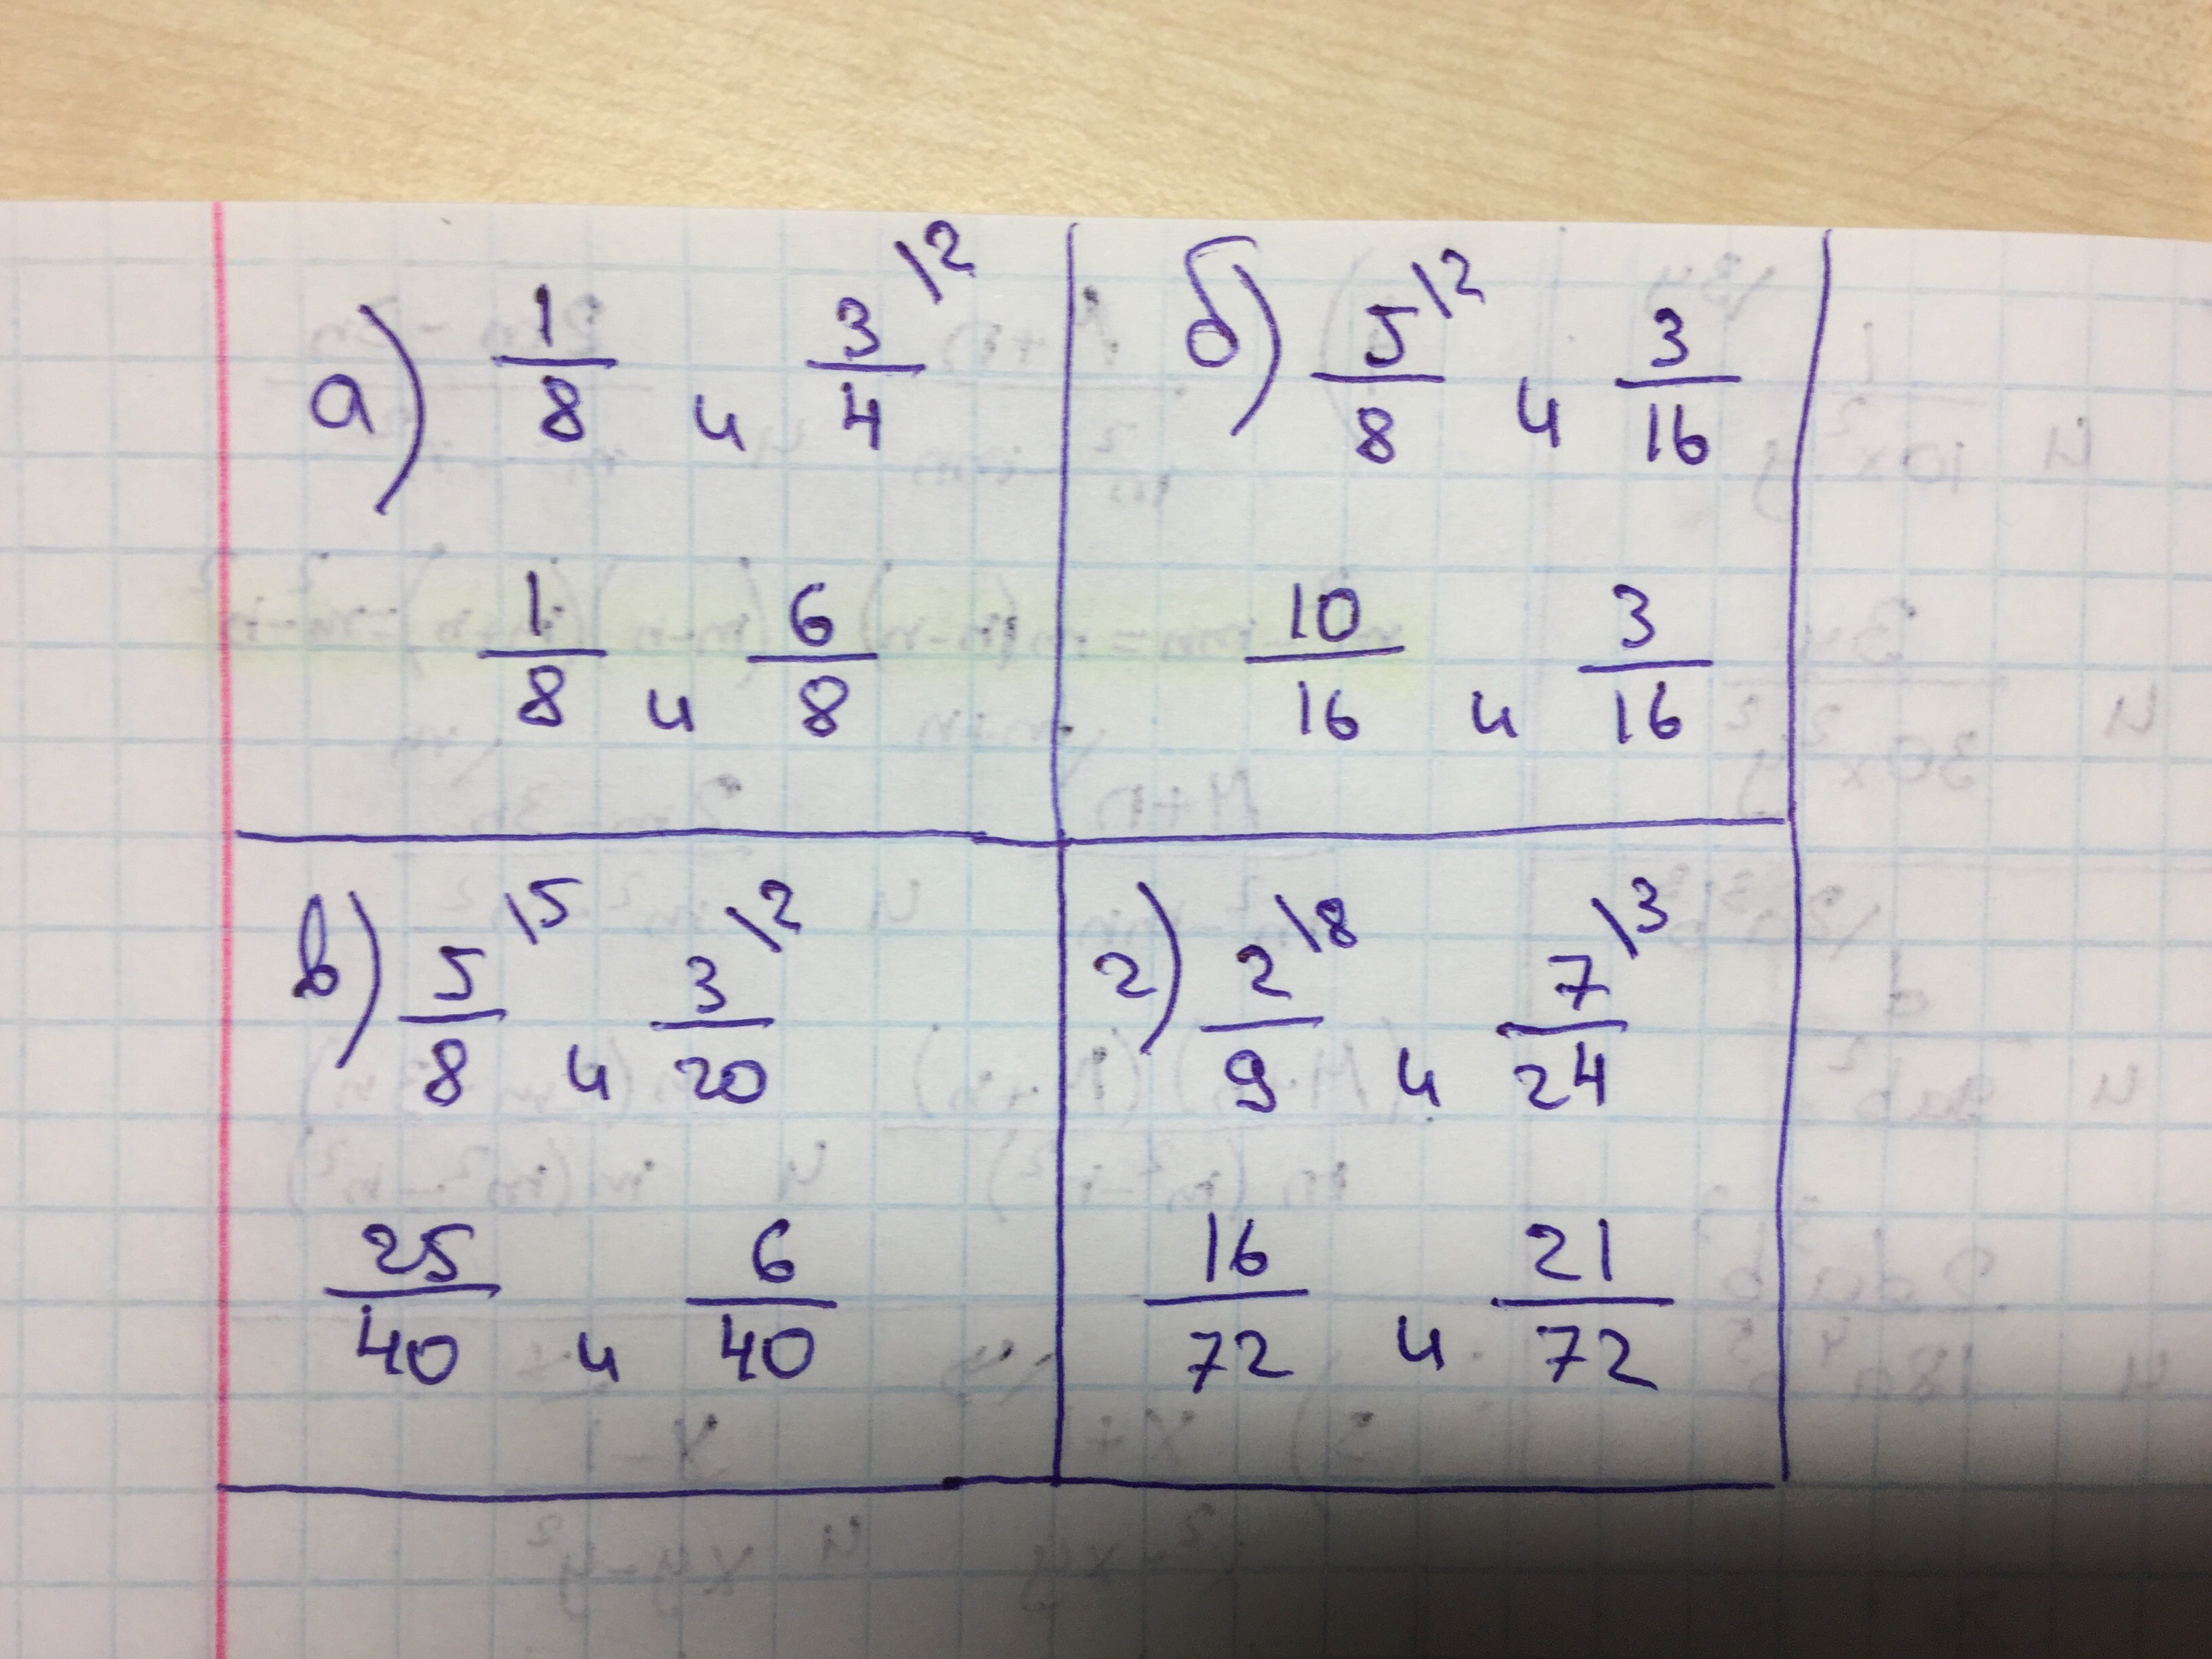 а) 1/8 и 3/4 \2
1/8 и 6/8
б) 5/8 \2 и 3/16
10/16 и 3/16
в) 5/8 \5 и 3/20 \2
25/40 и 6/40
г) 2/9 \8 и 7/24 \3
16/72 и 21/72